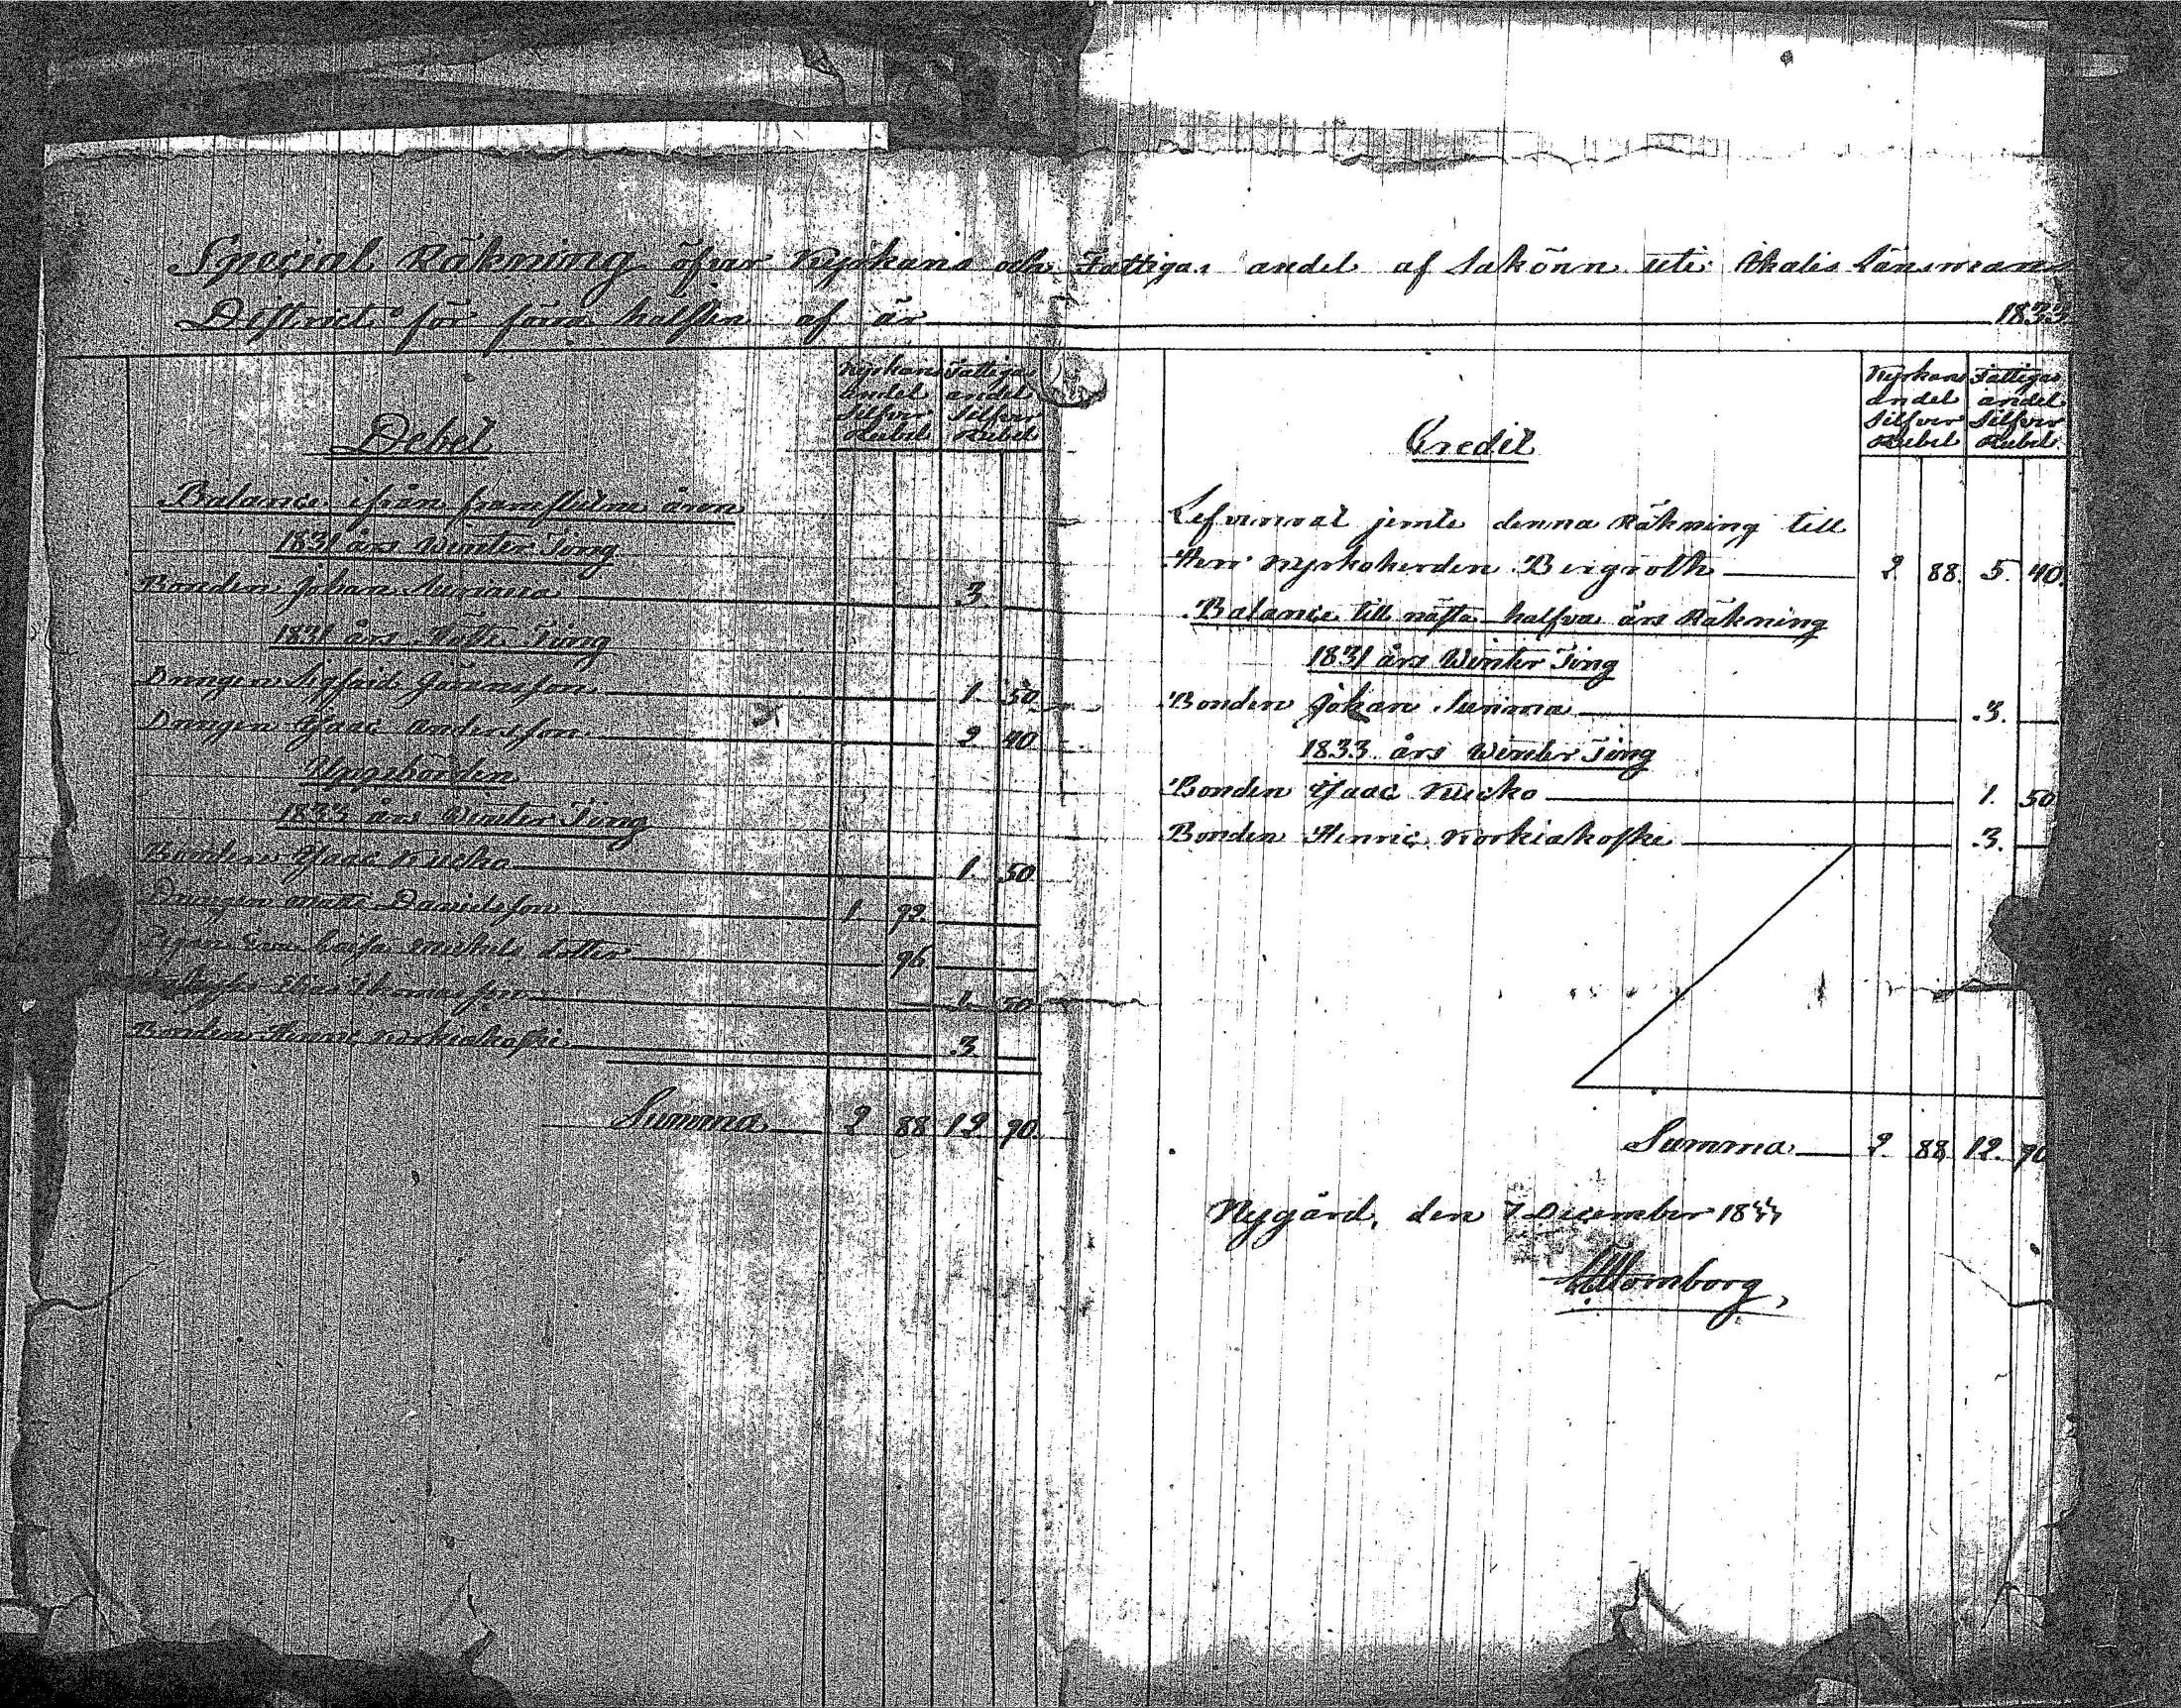 Special Räkning öfver Kyrkans och Fattigas andel af Sakören uti Ikalis Länsmans
District för förra hälften af år 1833
Debet
Kyrkans andel Silfver Rubel
Fattigas andel Silfver Rubel
Balance ifrån framflutne åren
1831 års Winter Ting
Bonden Johan 3
1831 års Höste Ting
Drängen Sigfrid Göransson 1. 50
Drängen Isaac Andersson 2 40
Uppebörden
1833 års Winter Ting
Bonden Isaac Kucko 1. 50
Drängen Matts Davidsson 1 92.
Pigan Eva Caisa Michels dotter 96
Elias Thomasson 1. 50
Bonden Henric Korkiakoski 3
Summa 2 88 12 90.
Credit
Kyrkans andel Silfver Rubel
Fattigas andel Silfver Rubel
Lefvererat jemte denna Räkning till
Herr Kyrkoherden Bergroth 2 88. 5. 40.
Balance till nästa halfva års Räkning
1831 års Winter Ting
Bonden Johan 3.
1833 års Winter Ting
Bonden Isaac Kucko 1. 50
Bonden Henric Korkiakoski 3.
Summa 2 88 12. 90
Nygård, den 7 December 18